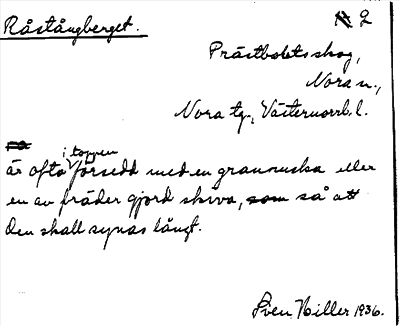 Råstångberget. 2
Prästbolets skog,
Nora sn.,
Nora tg., Västernorrl. l.
i toppen
är ofta försedd med en granruska eller
en av bräder gjord skiva, som så att
den skall synas långt.
Sven Hiller 1936.